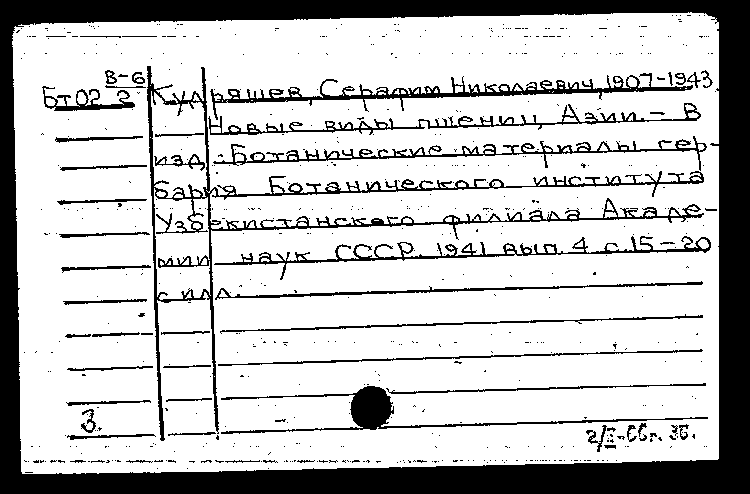 Бт02 В-6/2 Кудряшев, Серафим Николаевич, 1907-1943.
Новые виды пшениц Азии. - В
изд.: Ботанические материалы гер-
бария Ботанического института
Узбекистанского филиала Акаде-
мии наук СССР. 1941 вып. 4 с. 15-20
с илл.
3.